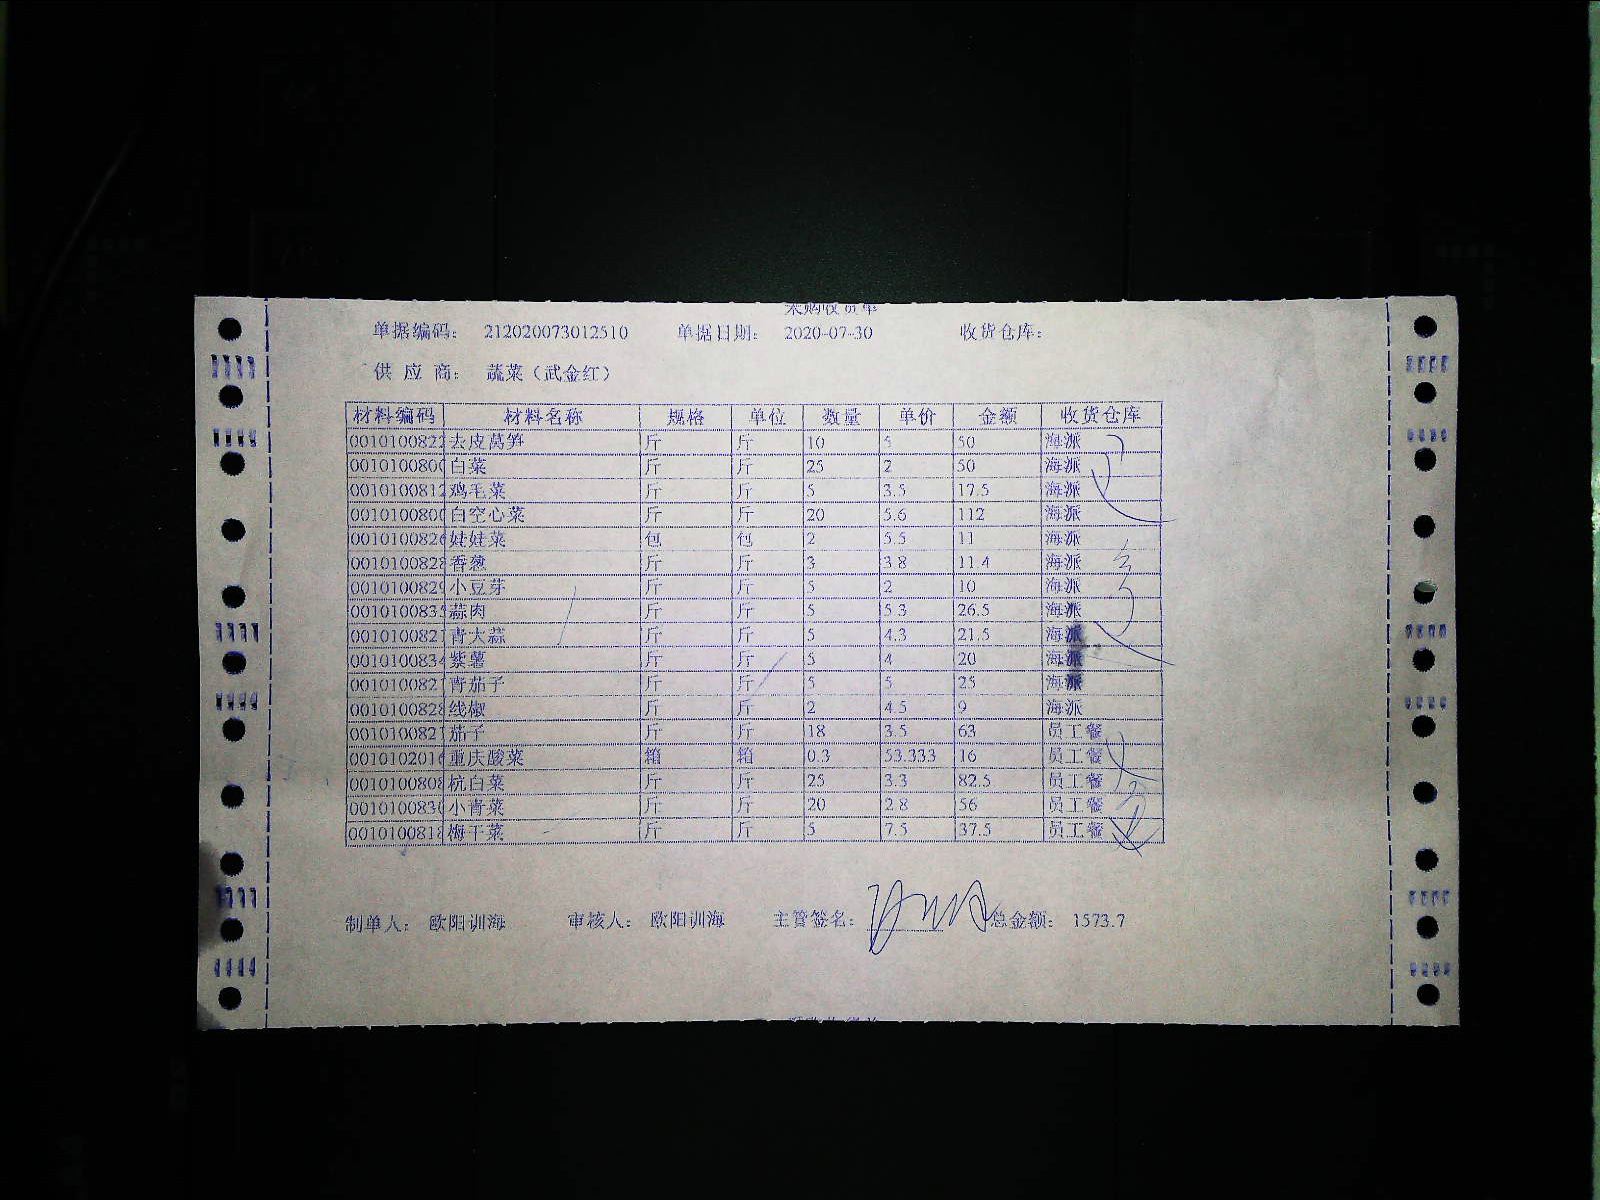 采购收货单
单据编码： 212020073012510 单据日期： 2020-07-30 收货仓库：
供 应 商： 蔬菜（武金红）
材料编码 材料名称 规格 单位 数量 单价 金额 收货仓库
0010100822 去皮莴笋 斤 斤 10 5 50 海派
001010080 白菜 斤 斤 25 2 50 海派
0010100812 鸡毛菜 斤 斤 5 3.5 17.5 海派
001010080 白空心菜 斤 斤 20 5.6 112 海派
001010082 娃娃菜 包 包 2 5.5 11 海派
001010082 香葱 斤 斤 3 3.8 11.4 海派
001010082 小豆芽 斤 斤 5 2 10 海派
001010083 蒜肉 斤 斤 5 5.3 26.5 海派
001010082 青大蒜 斤 斤 5 4.3 21.5 海派
001010083 紫薯 斤 斤 5 4 20 海派
001010082 青茄子 斤 斤 5 5 25 海派
001010082 线椒 斤 斤 2 4.5 9 海派
001010082 茄子 斤 斤 18 3.5 63 员工餐
001010201 重庆酸菜 箱 箱 0.3 53.333 16 员工餐
001010080 杭白菜 斤 斤 25 3.3 82.5 员工餐
001010083 小青菜 斤 斤 20 2.8 56 员工餐
001010081 梅干菜 斤 斤 5 7.5 37.5 员工餐
制单人： 欧阳训海 审核人： 欧阳训海 主管签名： 总金额： 1573.7